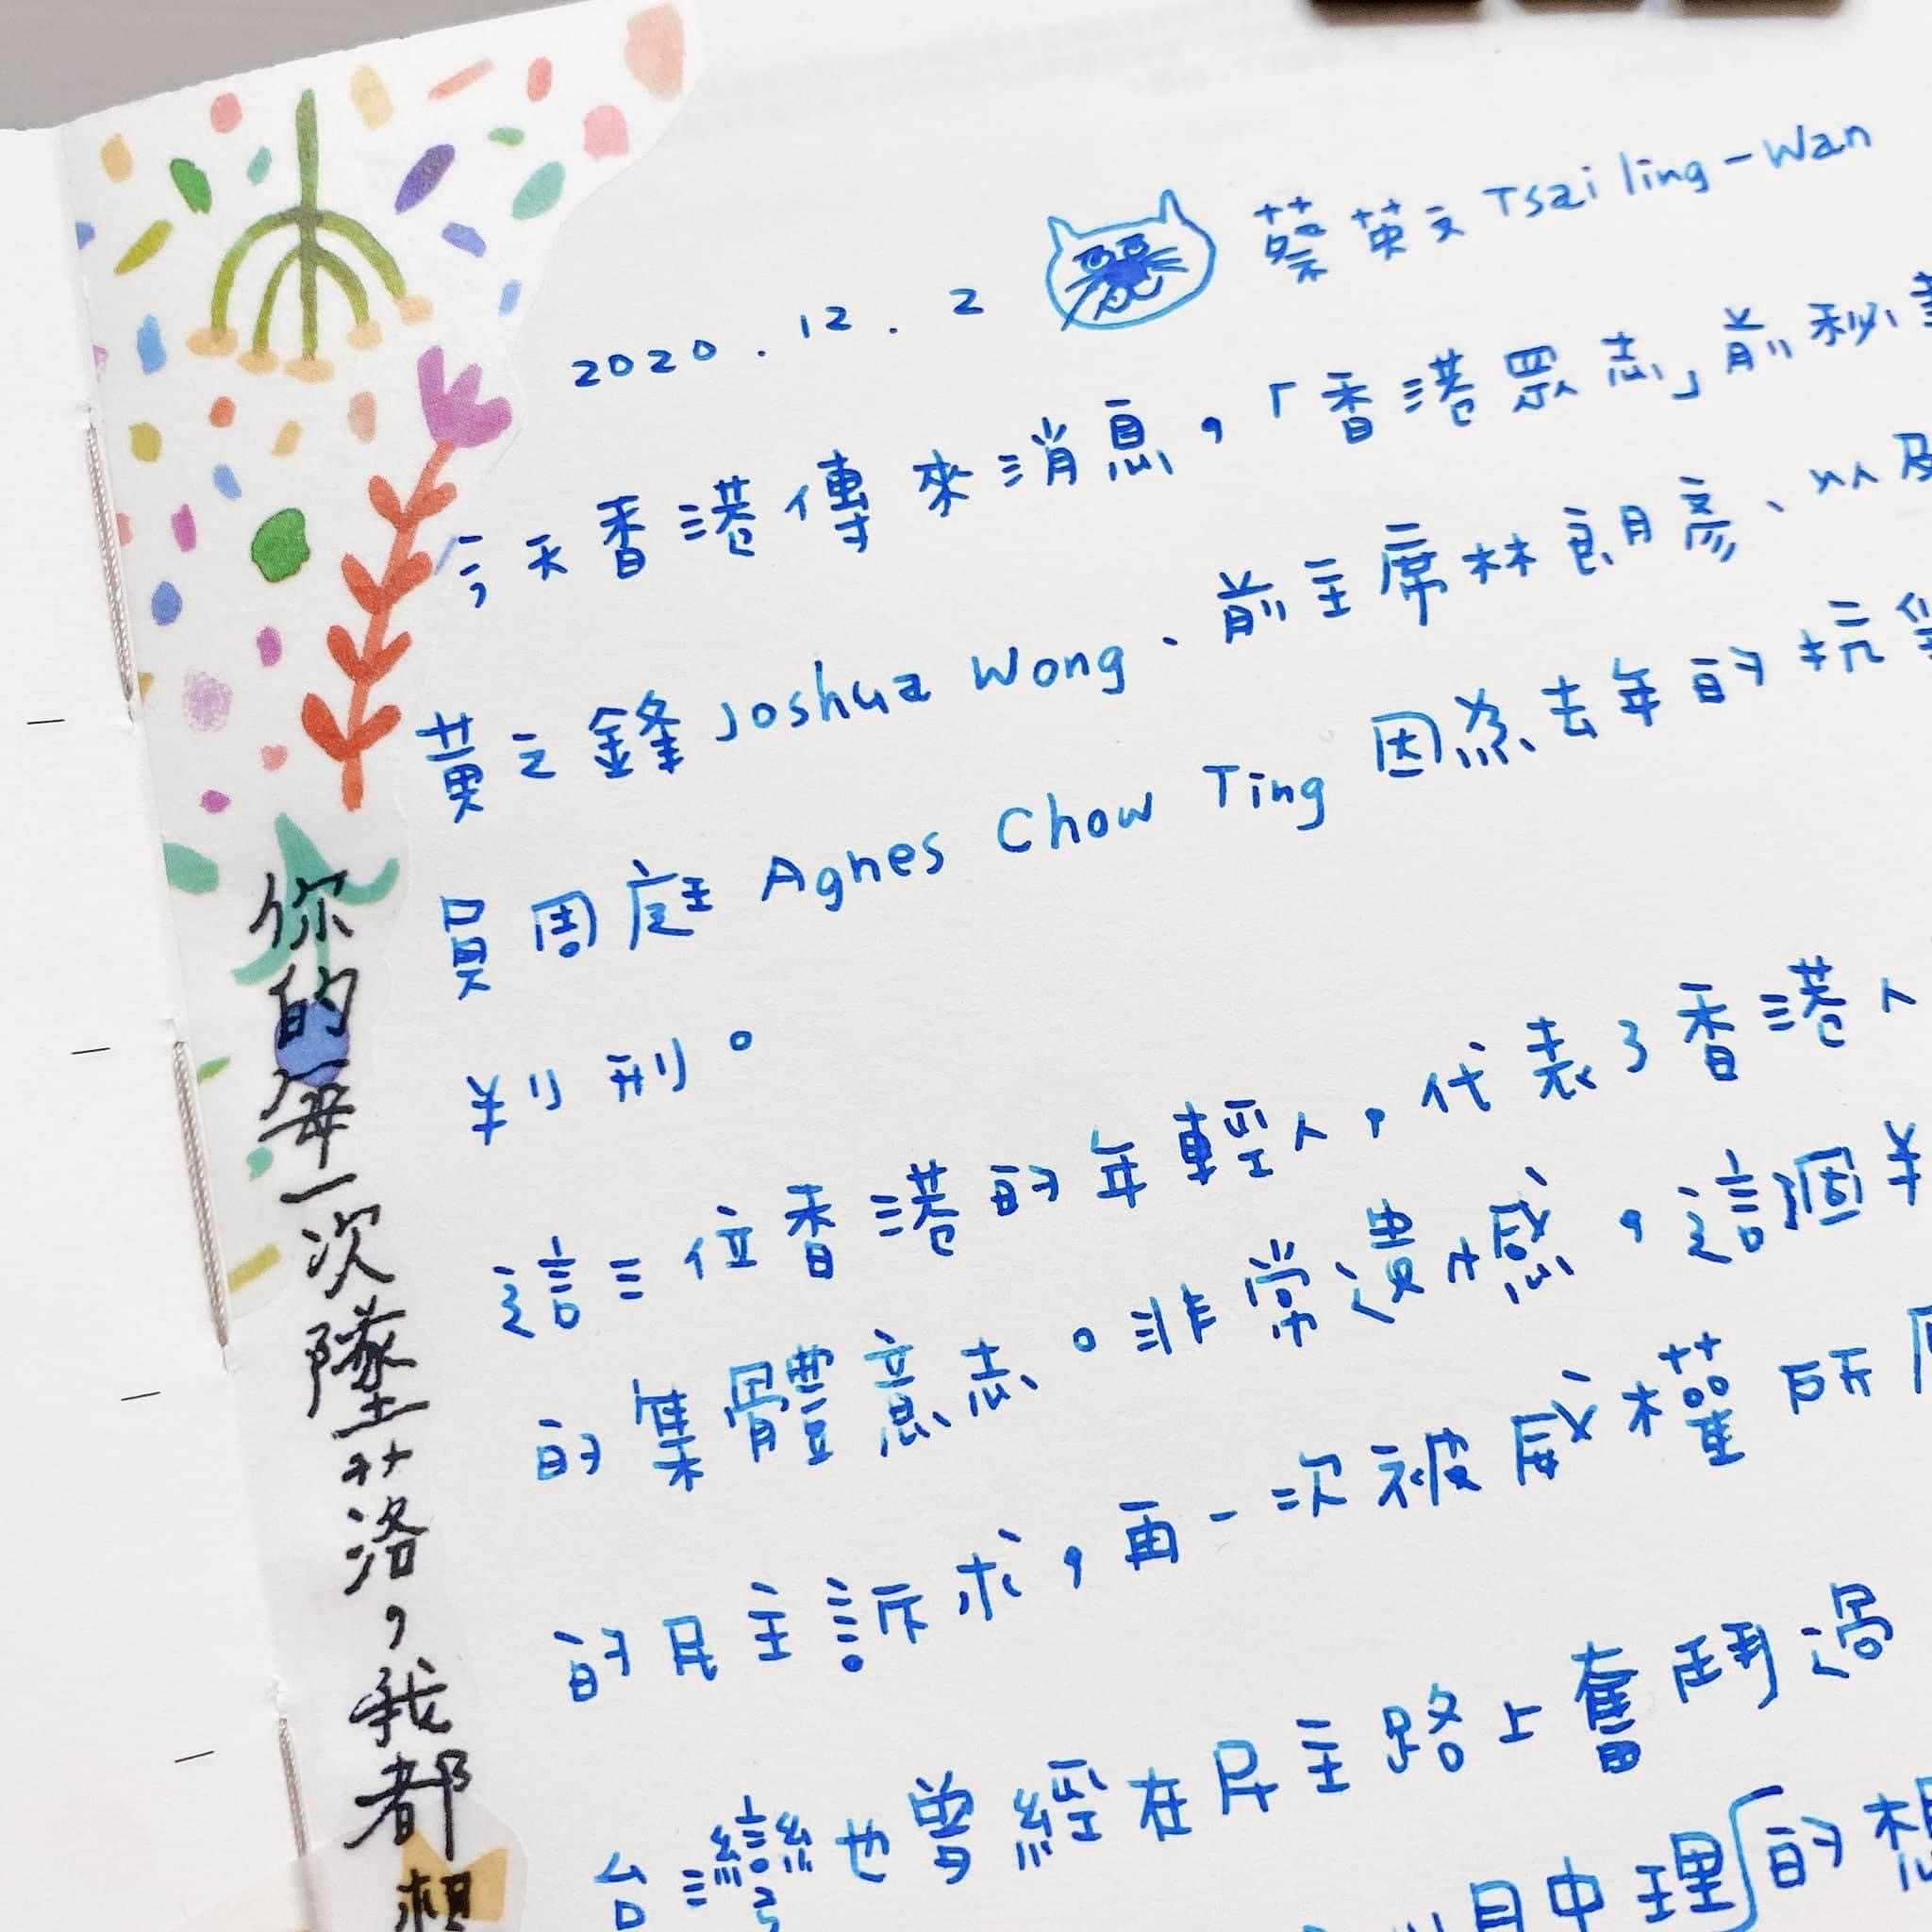 2020.12.2 蔡英文 Tsai Iing-Wan
今天香港傳來消息，「香港眾志」前秘
黃之鋒 Joshua Wong、前主席林朗彥、以及
員周庭 Agnes Chow Ting 因為去年的抗
判刑。
這三位香港的年輕人，代表了香港人
的集體意志。非常遺憾，這個
的民主訴求，再一次被威權所
台灣也曾經在民主路上奮鬥過
中理的想
你的每一次墜落，我都想